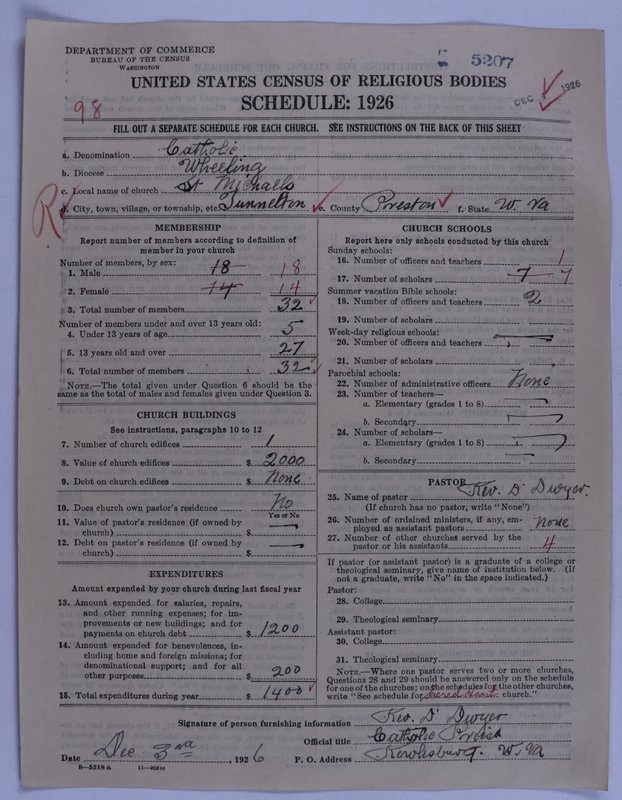 DEPARTMENT OF COMMERCE
BUREAU OF THE CENSUS
WASHINGTON
5207
UNITED STATES CENSUS OF RELIGIOUS BODIES
SCHEDULE: 1926
DEC 1926
98
FILL OUT A SEPARATE SCHEDULE FOR EACH CHURCH. SEE INSTRUCTIONS ON THE BACK OF THIS SHEET
a. Denomination Catholic
b. Diocese Wheeling
c. Local name of church St Michaels
R
d. City, town, village, or township, etc. Tunnelton e. County Preston f. State W. Va
MEMBERSHIP
Report number of members according to definition of
member in your church
Number of members, by sex:
1. Male 18 18
2. Female 14 14
3. Total number of members 32
Number of members under and over 13 years old:
4. Under 13 years of age 5
5. 13 years old and over 27
6. Total number of members 32
NOTE.—The total given under Question 6 should be the
same as the total of males and females given under Question 3.
CHURCH BUILDINGS
See instructions, paragraphs 10 to 12
7. Number of church edifices 1
8. Value of church edifices $ 2000
9. Debt on church edifices $ None
10. Does church own pastor's residence No
Yes or No
11. Value of pastor's residence (if owned by
church) $
12. Debt on pastor's residence (if owned by
church) $
EXPENDITURES
Amount expended by your church during last fiscal year
13. Amount expended for salaries, repairs,
and other running expenses; for im-
provements or new buildings; and for
payments on church debt $ 1200
14. Amount expended for benevolences, in-
cluding home and foreign missions; for
denominational support; and for all
other purposes $ 200
15. Total expenditures during year $ 1400
CHURCH SCHOOLS
Report here only schools conducted by this church
Sunday schools:
16. Number of officers and teachers 1
17. Number of scholars 7 7
Summer vacation Bible schools:
18. Number of officers and teachers 2
19. Number of scholars
Week-day religious schools:
20. Number of officers and teachers
21. Number of scholars
Parochial schools:
22. Number of administrative officers None
23. Number of teachers—
a. Elementary (grades 1 to 8)
b. Secondary
24. Number of scholars—
a. Elementary (grades 1 to 8)
b. Secondary
PASTOR
25. Name of pastor Rev. D. Dwyer.
(If church has no pastor, write "None")
26. Number of ordained ministers, if any, em-
ployed as assistant pastors none
27. Number of other churches served by the
pastor or his assistants 4
If pastor (or assistant pastor) is a graduate of a college or
theological seminary, give name of institution below. (If
not a graduate, write "No" in the space indicated.)
Pastor:
28. College
29. Theological seminary
Assistant pastor:
30. College
31. Theological seminary
NOTE.—Where one pastor serves two or more churches,
Questions 28 and 29 should be answered only on the schedule
for one of the churches; on the schedules for the other churches,
write "See schedule for Sacred Heart church."
Signature of person furnishing information Rev. D. Dwyer
Official title Catholic Priest
Date Dec. 3rd, 1926 P. O. Address Rowlesburg. W. Va
8—5518a 11—9054c